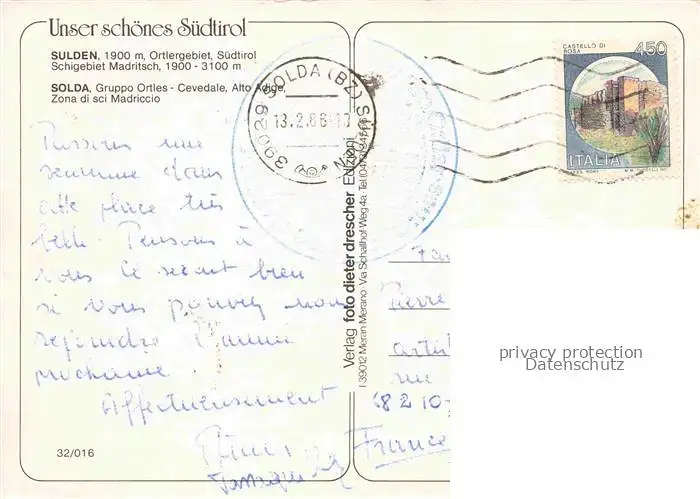 Unser schönes Südtirol
SULDEN, 1900 m, Ortlergebiet, Südtirol
Schigebiet Madritsch, 1900 - 3100 m
SOLDA, Gruppo Ortles - Cevedale, Alto Adige,
Zona di sci Madriccio
Passons une
semaine dans
cette place très
belle. Pensons à
vous. Ce serait bien
si vous pouvez nous
rejoindre l'année
prochaine.
Affectueusement
32/016
39029 SOLDA (BZ)
13.2.86
Verlag foto dieter drescher Edizioni
I-39012 Meran Merano · Via Schallhof Weg 4a · Tel.
CASTELLO DI
ROSA
450
ITALIA
Pierre
rue
68210
France
privacy protection
Datenschutz